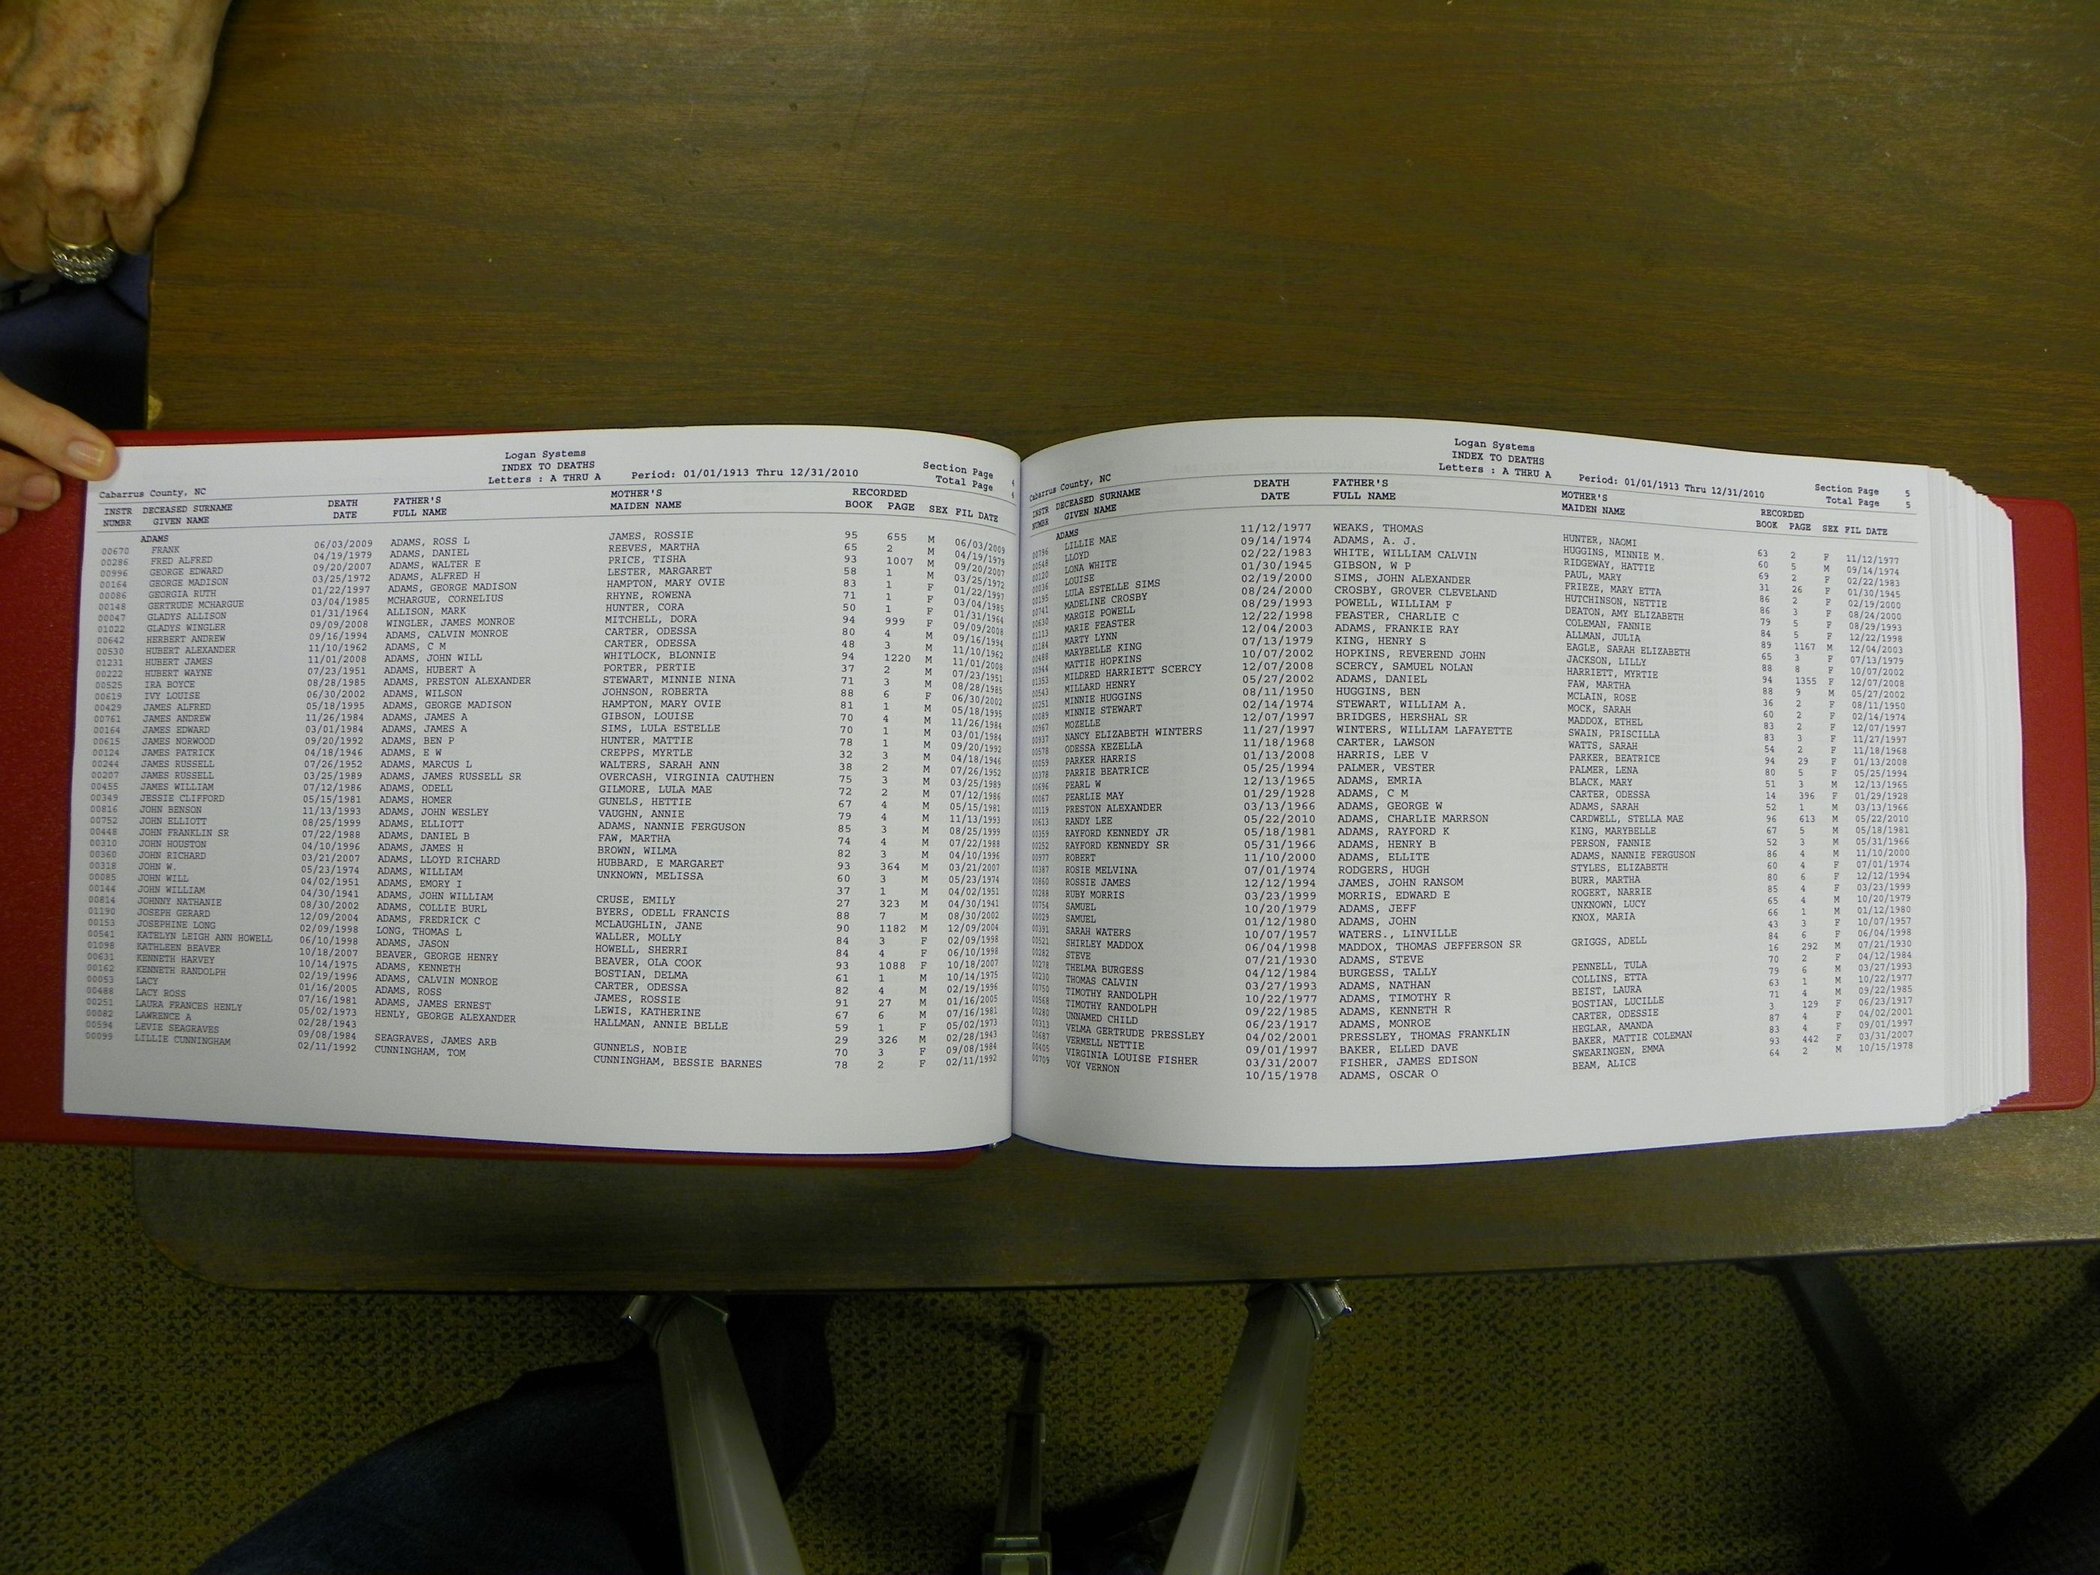 Logan Systems
INDEX TO DEATHS
Letters : A THRU A Period: 01/01/1913 Thru 12/31/2010
Section Page 4
Total Page 4
Cabarrus County, NC
INSTR DECEASED SURNAME DEATH FATHER'S MOTHER'S RECORDED
NUMBR GIVEN NAME DATE FULL NAME MAIDEN NAME BOOK PAGE SEX FIL DATE
ADAMS
00670 FRANK 06/03/2009 ADAMS, ROSS L JAMES, ROSSIE 95 655 M 06/03/2009
00286 FRED ALFRED 04/19/1979 ADAMS, DANIEL REEVES, MARTHA 65 2 M 04/19/1979
00996 GEORGE EDWARD 09/20/2007 ADAMS, WALTER E PRICE, TISHA 93 1007 M 09/20/2007
00164 GEORGE MADISON 03/25/1972 ADAMS, ALFRED H LESTER, MARGARET 58 1 M 03/25/1972
00086 GEORGIA RUTH 01/22/1997 ADAMS, GEORGE MADISON HAMPTON, MARY OVIE 83 1 F 01/22/1997
00148 GERTRUDE MCHARGUE 03/04/1985 MCHARGUE, CORNELIUS RHYNE, ROWENA 71 1 F 03/04/1985
00047 GLADYS ALLISON 01/31/1964 ALLISON, MARK HUNTER, CORA 50 1 F 01/31/1964
01022 GLADYS WINGLER 09/09/2008 WINGLER, JAMES MONROE MITCHELL, DORA 94 999 F 09/09/2008
00642 HERBERT ANDREW 09/16/1994 ADAMS, CALVIN MONROE CARTER, ODESSA 80 4 M 09/16/1994
00530 HUBERT ALEXANDER 11/10/1962 ADAMS, C M CARTER, ODESSA 48 3 M 11/10/1962
01231 HUBERT JAMES 11/01/2008 ADAMS, JOHN WILL WHITLOCK, BLONNIE 94 1220 M 11/01/2008
00222 HUBERT WAYNE 07/23/1951 ADAMS, HUBERT A PORTER, PERTIE 37 2 M 07/23/1951
00525 IRA BOYCE 08/28/1985 ADAMS, PRESTON ALEXANDER STEWART, MINNIE NINA 71 3 M 08/28/1985
00619 IVY LOUISE 06/30/2002 ADAMS, WILSON JOHNSON, ROBERTA 88 6 F 06/30/2002
00429 JAMES ALFRED 05/18/1995 ADAMS, GEORGE MADISON HAMPTON, MARY OVIE 81 1 M 05/18/1995
00761 JAMES ANDREW 11/26/1984 ADAMS, JAMES A GIBSON, LOUISE 70 4 M 11/26/1984
00164 JAMES EDWARD 03/01/1984 ADAMS, JAMES A SIMS, LULA ESTELLE 70 1 M 03/01/1984
00615 JAMES NORWOOD 09/20/1992 ADAMS, BEN P HUNTER, MATTIE 78 1 M 09/20/1992
00124 JAMES PATRICK 04/18/1946 ADAMS, E W CREPPS, MYRTLE 32 3 M 04/18/1946
00244 JAMES RUSSELL 07/26/1952 ADAMS, MARCUS L WALTERS, SARAH ANN 38 2 M 07/26/1952
00207 JAMES RUSSELL 03/25/1989 ADAMS, JAMES RUSSELL SR OVERCASH, VIRGINIA CAUTHEN 75 3 M 03/25/1989
00455 JAMES WILLIAM 07/12/1986 ADAMS, ODELL GILMORE, LULA MAE 72 2 M 07/12/1986
00349 JESSIE CLIFFORD 05/15/1981 ADAMS, HOMER GUNELS, HETTIE 67 4 M 05/15/1981
00816 JOHN BENSON 11/13/1993 ADAMS, JOHN WESLEY VAUGHN, ANNIE 79 4 M 11/13/1993
00752 JOHN ELLIOTT 08/25/1999 ADAMS, ELLIOTT ADAMS, NANNIE FERGUSON 85 3 M 08/25/1999
00448 JOHN FRANKLIN SR 07/22/1988 ADAMS, DANIEL B FAW, MARTHA 74 4 M 07/22/1988
00310 JOHN HOUSTON 04/10/1996 ADAMS, JAMES H BROWN, WILMA 82 3 M 04/10/1996
00360 JOHN RICHARD 03/21/2007 ADAMS, LLOYD RICHARD HUBBARD, E MARGARET 93 364 M 03/21/2007
00318 JOHN W. 05/23/1974 ADAMS, WILLIAM UNKNOWN, MELISSA 60 3 M 05/23/1974
00085 JOHN WILL 04/02/1951 ADAMS, EMORY I 37 1 M 04/02/1951
00144 JOHN WILLIAM 04/30/1941 ADAMS, JOHN WILLIAM CRUSE, EMILY 27 323 M 04/30/1941
00814 JOHNNY NATHANIE 08/30/2002 ADAMS, COLLIE BURL BYERS, ODELL FRANCIS 88 7 M 08/30/2002
01190 JOSEPH GERARD 12/09/2004 ADAMS, FREDRICK C MCLAUGHLIN, JANE 90 1182 M 12/09/2004
00153 JOSEPHINE LONG 02/09/1998 LONG, THOMAS L WALLER, MOLLY 84 3 F 02/09/1998
00541 KATELYN LEIGH ANN HOWELL 06/10/1998 ADAMS, JASON HOWELL, SHERRI 84 4 F 06/10/1998
01098 KATHLEEN BEAVER 10/18/2007 BEAVER, GEORGE HENRY BEAVER, OLA COOK 93 1088 F 10/18/2007
00631 KENNETH HARVEY 10/14/1975 ADAMS, KENNETH BOSTIAN, DELMA 61 1 M 10/14/1975
00162 KENNETH RANDOLPH 02/19/1996 ADAMS, CALVIN MONROE CARTER, ODESSA 82 4 M 02/19/1996
00053 LACY 01/16/2005 ADAMS, ROSS JAMES, ROSSIE 91 27 M 01/16/2005
00488 LACY ROSS 07/16/1981 ADAMS, JAMES ERNEST LEWIS, KATHERINE 67 6 M 07/16/1981
00251 LAURA FRANCES HENLY 05/02/1973 HENLY, GEORGE ALEXANDER HALLMAN, ANNIE BELLE 59 1 F 05/02/1973
00082 LAWRENCE A 02/28/1943 29 326 M 02/28/1943
00594 LEVIE SEAGRAVES 09/08/1984 SEAGRAVES, JAMES ARB GUNNELS, NOBIE 70 3 F 09/08/1984
00099 LILLIE CUNNINGHAM 02/11/1992 CUNNINGHAM, TOM CUNNINGHAM, BESSIE BARNES 78 2 F 02/11/1992
Logan Systems
INDEX TO DEATHS
Letters : A THRU A Period: 01/01/1913 Thru 12/31/2010
Section Page 5
Total Page 5
Cabarrus County, NC
INSTR DECEASED SURNAME DEATH FATHER'S MOTHER'S RECORDED
NUMBR GIVEN NAME DATE FULL NAME MAIDEN NAME BOOK PAGE SEX FIL DATE
ADAMS
00796 LILLIE MAE 11/12/1977 WEAKS, THOMAS HUNTER, NAOMI 63 2 F 11/12/1977
00548 LLOYD 09/14/1974 ADAMS, A. J. HUGGINS, MINNIE M. 60 5 M 09/14/1974
00120 LONA WHITE 02/22/1983 WHITE, WILLIAM CALVIN RIDGEWAY, HATTIE 69 2 F 02/22/1983
00036 LOUISE 01/30/1945 GIBSON, W P PAUL, MARY 31 26 F 01/30/1945
00195 LULA ESTELLE SIMS 02/19/2000 SIMS, JOHN ALEXANDER FRIEZE, MARY ETTA 86 2 F 02/19/2000
00741 MADELINE CROSBY 08/24/2000 CROSBY, GROVER CLEVELAND HUTCHINSON, NETTIE 86 3 F 08/24/2000
00630 MARGIE POWELL 08/29/1993 POWELL, WILLIAM F DEATON, AMY ELIZABETH 79 5 F 08/29/1993
01113 MARIE FEASTER 12/22/1998 FEASTER, CHARLIE C COLEMAN, FANNIE 84 5 F 12/22/1998
01184 MARTY LYNN 12/04/2003 ADAMS, FRANKIE RAY ALLMAN, JULIA 89 1167 M 12/04/2003
00488 MARYBELLE KING 07/13/1979 KING, HENRY S EAGLE, SARAH ELIZABETH 65 3 F 07/13/1979
00944 MATTIE HOPKINS 10/07/2002 HOPKINS, REVEREND JOHN JACKSON, LILLY 88 8 F 10/07/2002
01353 MILDRED HARRIETT SCERCY 12/07/2008 SCERCY, SAMUEL NOLAN HARRIETT, MYRTIE 94 1355 F 12/07/2008
00543 MILLARD HENRY 05/27/2002 ADAMS, DANIEL FAW, MARTHA 88 9 M 05/27/2002
00251 MINNIE HUGGINS 08/11/1950 HUGGINS, BEN MCLAIN, ROSE 36 2 F 08/11/1950
00089 MINNIE STEWART 02/14/1974 STEWART, WILLIAM A. MOCK, SARAH 60 2 F 02/14/1974
00967 MOZELLE 12/07/1997 BRIDGES, HERSHAL SR MADDOX, ETHEL 83 2 F 12/07/1997
00937 NANCY ELIZABETH WINTERS 11/27/1997 WINTERS, WILLIAM LAFAYETTE SWAIN, PRISCILLA 83 3 F 11/27/1997
00578 ODESSA KEZELLA 11/18/1968 CARTER, LAWSON WATTS, SARAH 54 2 F 11/18/1968
00059 PARKER HARRIS 01/13/2008 HARRIS, LEE V PARKER, BEATRICE 94 29 F 01/13/2008
00378 PARRIE BEATRICE 05/25/1994 PALMER, VESTER PALMER, LENA 80 5 F 05/25/1994
00696 PEARL W 12/13/1965 ADAMS, EMRIA BLACK, MARY 51 3 M 12/13/1965
00067 PEARLIE MAY 01/29/1928 ADAMS, C M CARTER, ODESSA 14 396 F 01/29/1928
00119 PRESTON ALEXANDER 03/13/1966 ADAMS, GEORGE W ADAMS, SARAH 52 1 M 03/13/1966
00613 RANDY LEE 05/22/2010 ADAMS, CHARLIE MARRSON CARDWELL, STELLA MAE 96 613 M 05/22/2010
00359 RAYFORD KENNEDY JR 05/18/1981 ADAMS, RAYFORD K KING, MARYBELLE 67 5 M 05/18/1981
00252 RAYFORD KENNEDY SR 05/31/1966 ADAMS, HENRY B PERSON, FANNIE 52 3 M 05/31/1966
00977 ROBERT 11/10/2000 ADAMS, ELLITE ADAMS, NANNIE FERGUSON 86 4 M 11/10/2000
00387 ROSIE MELVINA 07/01/1974 RODGERS, HUGH STYLES, ELIZABETH 60 4 F 07/01/1974
00860 ROSSIE JAMES 12/12/1994 JAMES, JOHN RANSOM BURR, MARTHA 80 6 F 12/12/1994
00288 RUBY MORRIS 03/23/1999 MORRIS, EDWARD E ROGERT, NARRIE 85 4 F 03/23/1999
00754 SAMUEL 10/20/1979 ADAMS, JEFF UNKNOWN, LUCY 65 4 M 10/20/1979
00029 SAMUEL 01/12/1980 ADAMS, JOHN KNOX, MARIA 66 1 M 01/12/1980
00391 SARAH WATERS 10/07/1957 WATERS., LINVILLE 43 3 F 10/07/1957
00521 SHIRLEY MADDOX 06/04/1998 MADDOX, THOMAS JEFFERSON SR GRIGGS, ADELL 84 6 F 06/04/1998
00282 STEVE 07/21/1930 ADAMS, STEVE 16 292 M 07/21/1930
00278 THELMA BURGESS 04/12/1984 BURGESS, TALLY PENNELL, TULA 70 2 F 04/12/1984
00230 THOMAS CALVIN 03/27/1993 ADAMS, NATHAN COLLINS, ETTA 79 6 M 03/27/1993
00750 TIMOTHY RANDOLPH 10/22/1977 ADAMS, TIMOTHY R BEIST, LAURA 63 1 M 10/22/1977
00568 TIMOTHY RANDOLPH 09/22/1985 ADAMS, KENNETH R BOSTIAN, LUCILLE 71 4 M 09/22/1985
00280 UNNAMED CHILD 06/23/1917 ADAMS, MONROE CARTER, ODESSIE 3 129 F 06/23/1917
00313 VELMA GERTRUDE PRESSLEY 04/02/2001 PRESSLEY, THOMAS FRANKLIN HEGLAR, AMANDA 87 4 F 04/02/2001
00687 VERMELL NETTIE 09/01/1997 BAKER, ELLED DAVE BAKER, MATTIE COLEMAN 83 4 F 09/01/1997
00405 VIRGINIA LOUISE FISHER 03/31/2007 FISHER, JAMES EDISON SWEARINGEN, EMMA 93 442 F 03/31/2007
00709 VOY VERNON 10/15/1978 ADAMS, OSCAR O BEAM, ALICE 64 2 M 10/15/1978